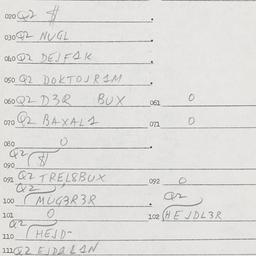 020 Q2 $
030 Q2 NUGL
040 Q2 DEJFAK
050 Q2 DOKTOJRAM
060 Q2 D3R BUX 061 0
070 Q2 BAXAL1 071 0
080 0
090 Q2 $
091 Q2 TREL8BUX 092 0
100 Q2 MUG3R3R
101 0 102 Q2 HEJDL3R
110 Q2 HEJD-
111 Q2 EJDALAN